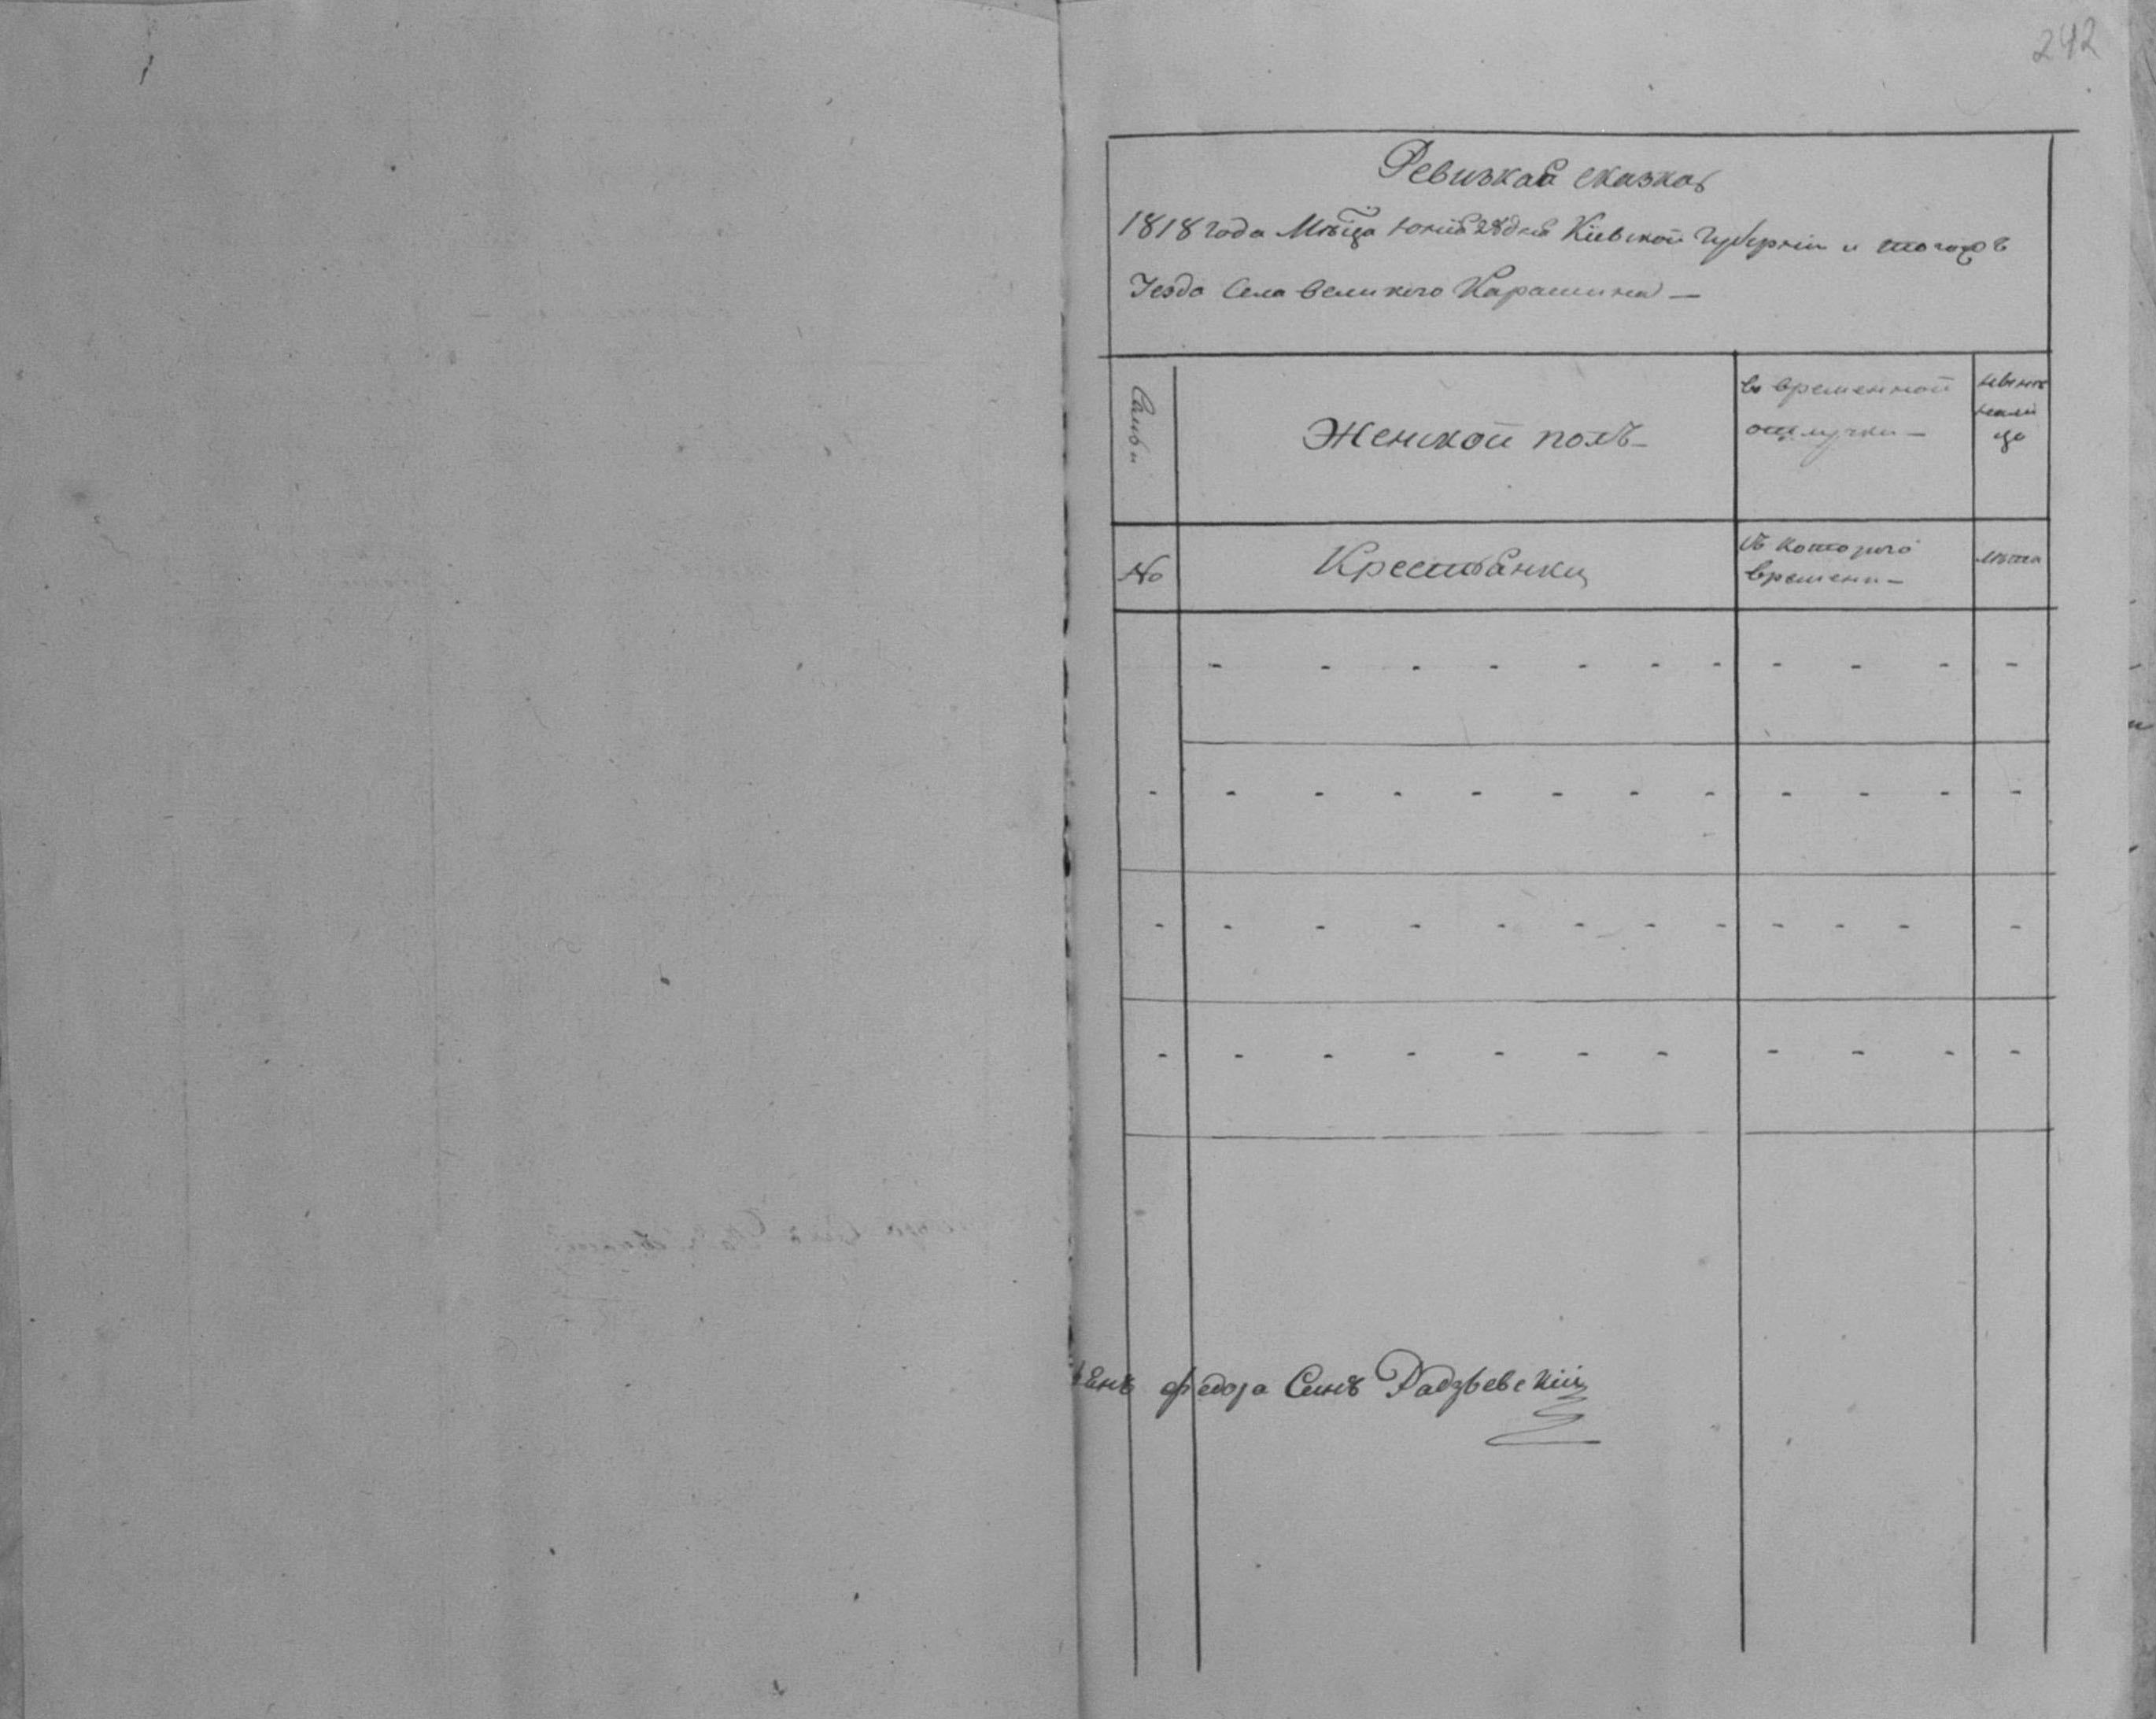 242
Ревизкая сказка
1818 года Мѣсца Юнія 28 дня Кіевской Губерніи и тогожъ
Уезда Села великого Карашина —
Семьи
Женской полъ —
во временной
отлучки —
ныне
нали
це
№
Крестьянки
съ которого
времени —
лѣта
- - - - - - - - - - -
- - - - - - - - - - - -
- - - - - - - - - - - -
- - - - - - - - - - -
Федора Синъ Радзѣевскій